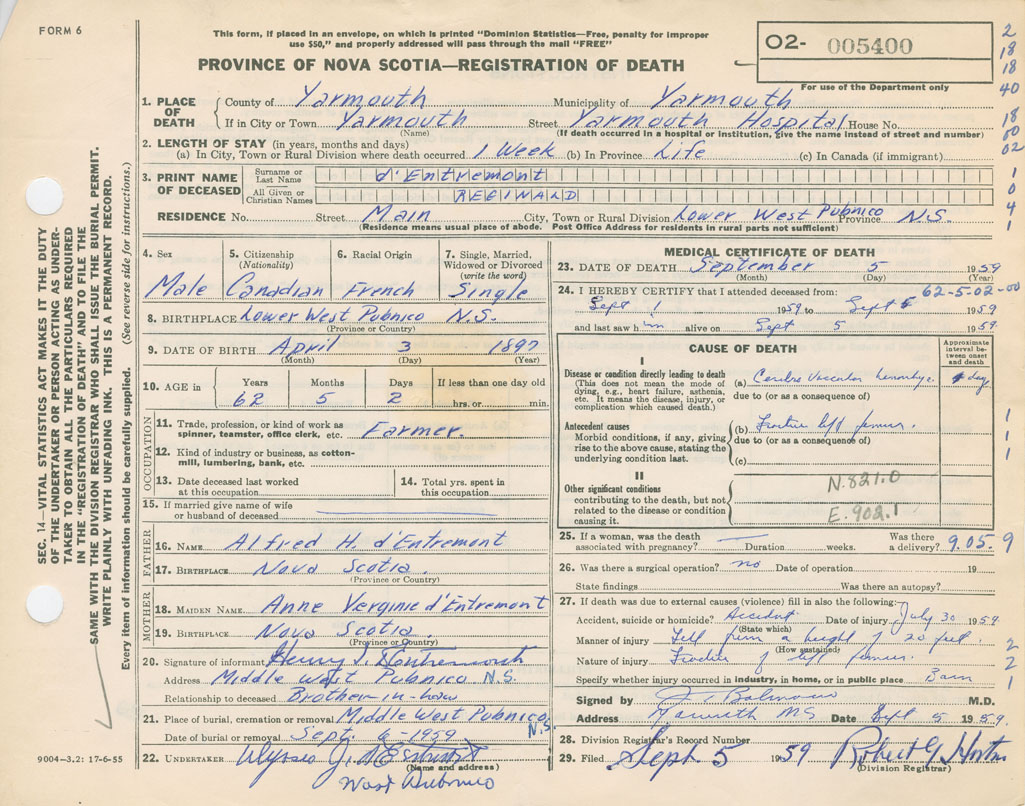 FORM 6
This form, if placed in an envelope, on which is printed "Dominion Statistics—Free, penalty for improper
use $50," and properly addressed will pass through the mail "FREE"
PROVINCE OF NOVA SCOTIA—REGISTRATION OF DEATH
O2- 005400
For use of the Department only
2
18
18
40
18
00
02
1
0
4
1
SEC. 14—VITAL STATISTICS ACT MAKES IT THE DUTY
OF THE UNDERTAKER OR PERSON ACTING AS UNDER-
TAKER TO OBTAIN ALL THE PARTICULARS REQUIRED
IN THE "REGISTRATION OF DEATH" AND TO FILE THE
SAME WITH THE DIVISION REGISTRAR WHO SHALL ISSUE THE BURIAL PERMIT.
WRITE PLAINLY WITH UNFADING INK. THIS IS A PERMANENT RECORD.
Every item of information should be carefully supplied. (See reverse side for instructions.)
1. PLACE OF DEATH
County of Yarmouth Municipality of Yarmouth
If in City or Town Yarmouth Street Yarmouth Hospital House No.
(Name) (If death occurred in a hospital or institution, give the name instead of street and number)
2. LENGTH OF STAY (in years, months and days)
(a) In City, Town or Rural Division where death occurred 1 Week (b) In Province Life (c) In Canada (if immigrant)
3. PRINT NAME OF DECEASED
Surname or Last Name d'Entremont
All Given or Christian Names REGINALD
RESIDENCE No. Street Main City, Town or Rural Division Lower West Pubnico Province N.S.
(Residence means usual place of abode. Post Office Address for residents in rural parts not sufficient)
4. Sex Male
5. Citizenship (Nationality) Canadian
6. Racial Origin French
7. Single, Married, Widowed or Divorced (write the word) Single
8. BIRTHPLACE Lower West Pubnico N.S.
(Province or Country)
9. DATE OF BIRTH April 3 1897
(Month) (Day) (Year)
10. AGE in Years Months Days If less than one day old
62 5 2 hrs. or min.
OCCUPATION
11. Trade, profession, or kind of work as
spinner, teamster, office clerk, etc. Farmer.
12. Kind of industry or business, as cotton-
mill, lumbering, bank, etc.
13. Date deceased last worked
at this occupation
14. Total yrs. spent in
this occupation
15. If married give name of wife
or husband of deceased
FATHER
16. NAME Alfred H. d'Entremont
17. BIRTHPLACE Nova Scotia.
(Province or Country)
MOTHER
18. MAIDEN NAME Anne Verginie d'Entremont
19. BIRTHPLACE Nova Scotia.
(Province or Country)
20. Signature of informant Henry J. d'Entremont
Address Middle West Pubnico N.S.
Relationship to deceased Brother-in-law
21. Place of burial, cremation or removal Middle West Pubnico N.S.
Date of burial or removal Sept. 6-1959
22. UNDERTAKER Ulysse J. d'Entremont
(Name and address)
West Pubnico
9004—3.2: 17-6-55
MEDICAL CERTIFICATE OF DEATH
23. DATE OF DEATH September 5 1959
(Month) (Day) (Year)
24. I HEREBY CERTIFY that I attended deceased from: 62-5-02-00
Sept 1 1959 to Sept 5 1959
and last saw him alive on Sept 5 1959
CAUSE OF DEATH
Approximate interval between onset and death
I
Disease or condition directly leading to death
(This does not mean the mode of
dying, e.g., heart failure, asthenia,
etc. It means the disease, injury, or
complication which caused death.)
(a) Cerebro Vascular hemorrhage. day
due to (or as a consequence of)
Antecedent causes
Morbid conditions, if any, giving
rise to the above cause, stating the
underlying condition last.
(b) Fracture left femur.
due to (or as a consequence of)
(c)
1
1
1
II
Other significant conditions
contributing to the death, but not
related to the disease or condition
causing it.
N.821.0
E.902.1
25. If a woman, was the death
associated with pregnancy? Duration weeks. Was there
a delivery? 9.05. 9
26. Was there a surgical operation? no Date of operation 19
State findings Was there an autopsy?
27. If death was due to external causes (violence) fill in also the following:
Accident, suicide or homicide? Accident Date of injury July 30 1959
(State which)
Manner of injury Fell from a height of 20 feet. 2
(How sustained)
Nature of injury Fracture of left femur. 2
Specify whether injury occurred in industry, in home, or in public place Barn 1
Signed by M.D.
Address Yarmouth NS Date Sept 5 1959.
28. Division Registrar's Record Number
29. Filed Sept. 5 1959 Robert G. Horton
(Division Registrar)